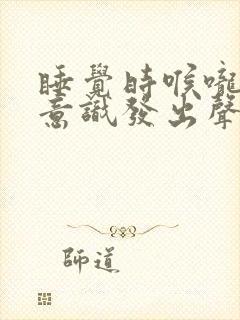 睡覺時喉嚨
意識發出聲
師道